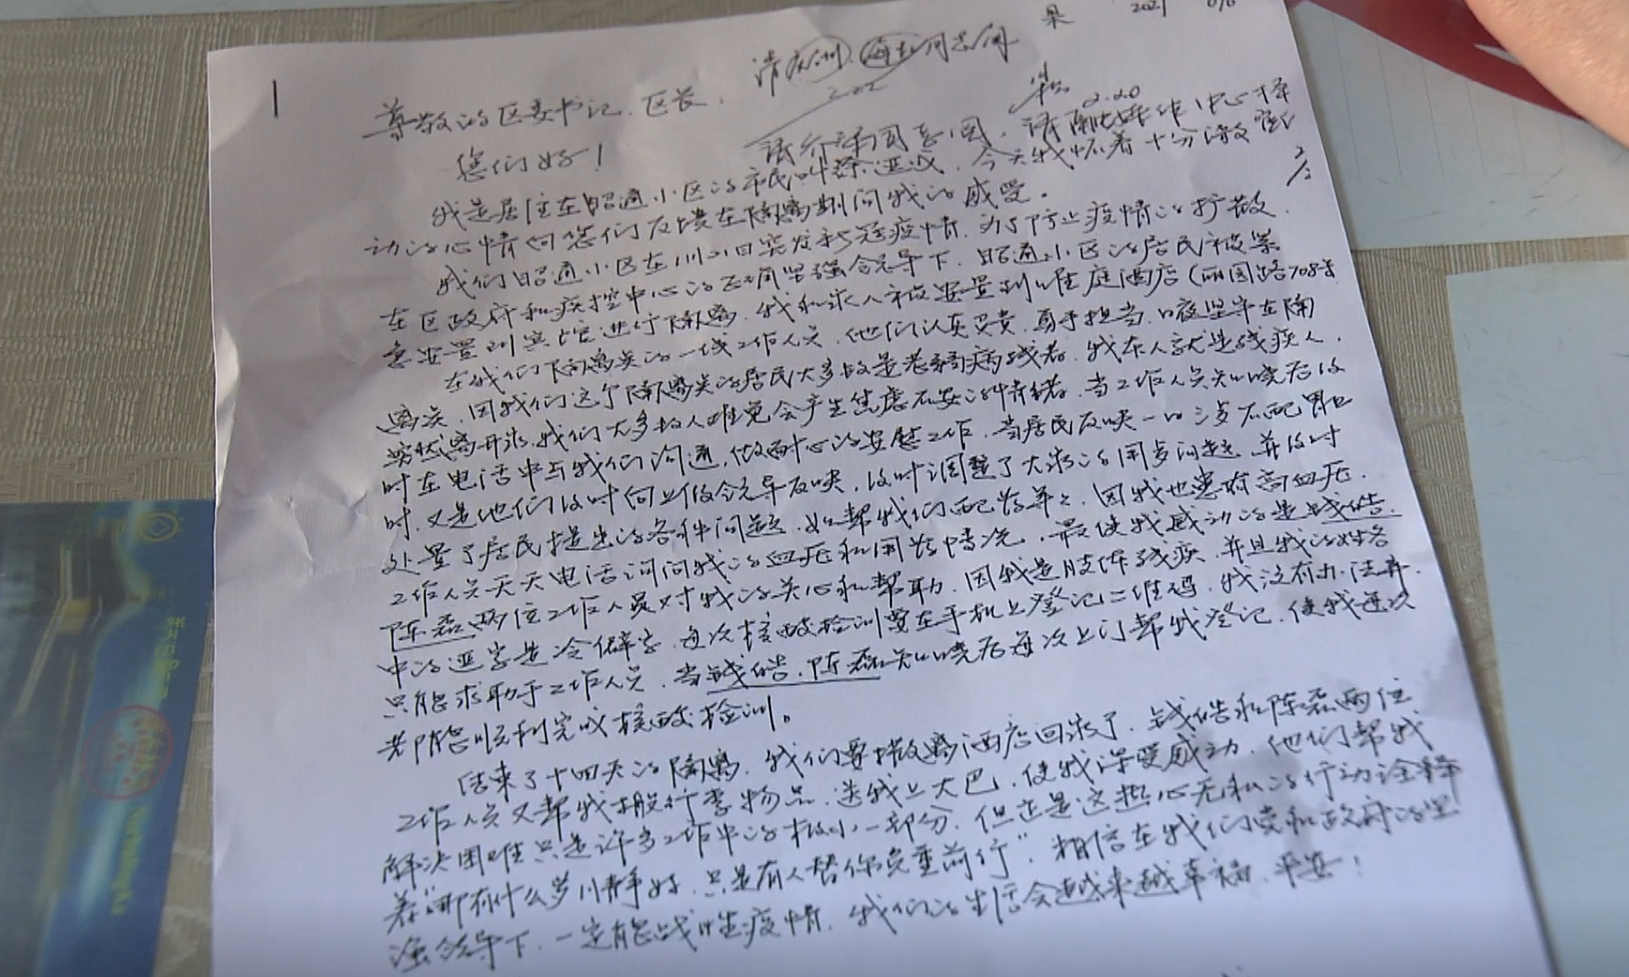 2021
2.20
尊敬的区委书记、区长:
您们好!
我是居住在昭通小区的市民叫 今天我怀着十分激
动的心情向您们反馈在隔离期间我的感受。
我们昭通小区在1月21日突发新冠疫情,为了防止疫情的扩散,
在区政府和疾控中心的正确坚强领导下,昭通小区的居民被紧
急安置到宾馆进行隔离,我和家人被安置到维庭酒店(丽园路708号
在我们隔离点的一线工作人员,他们认真负责,勇于担当,日夜坚守在隔
离点,因我们这个隔离点的居民大多数是老弱病残者,我本人就是残疾人,
突然离开家,我们大多数人难免会产生焦虑不安的情绪,当工作人员知晓后及
时在电话中与我们沟通,做耐心的安慰工作,当居民反映一日三餐不配胃口
时,又是他们及时向上级领导反映,及时调整了大家的用餐问题,并及时
处置了居民提出的各种问题,如帮我们配药等等,因我也患有高血压,
工作人员天天电话询问我的血压和用药情况,最使我感动的是钱皓、
陈磊两位工作人员对我的关心和帮助,因我是肢体残疾,并且我的姓名
中的 字是冷僻字,每次核酸检测要在手机上登记二维码,我没有办法弄,
只能求助于工作人员,当钱皓、陈磊知晓后每次上门帮我登记,使我每次
都能顺利完成核酸检测。
结束了十四天的隔离,我们要撤离酒店回家了,钱皓和陈磊两位
工作人员又帮我搬行李物品,送我上大巴,使我深受感动,他们帮我
解决困难只是许多工作中的极小一部分,但正是这热心无私的行动诠释
着“哪有什么岁月静好,只是有人替你负重前行”,相信在我们党和政府的坚
强领导下,一定能战胜疫情,我们的生活会越来越幸福、平安!